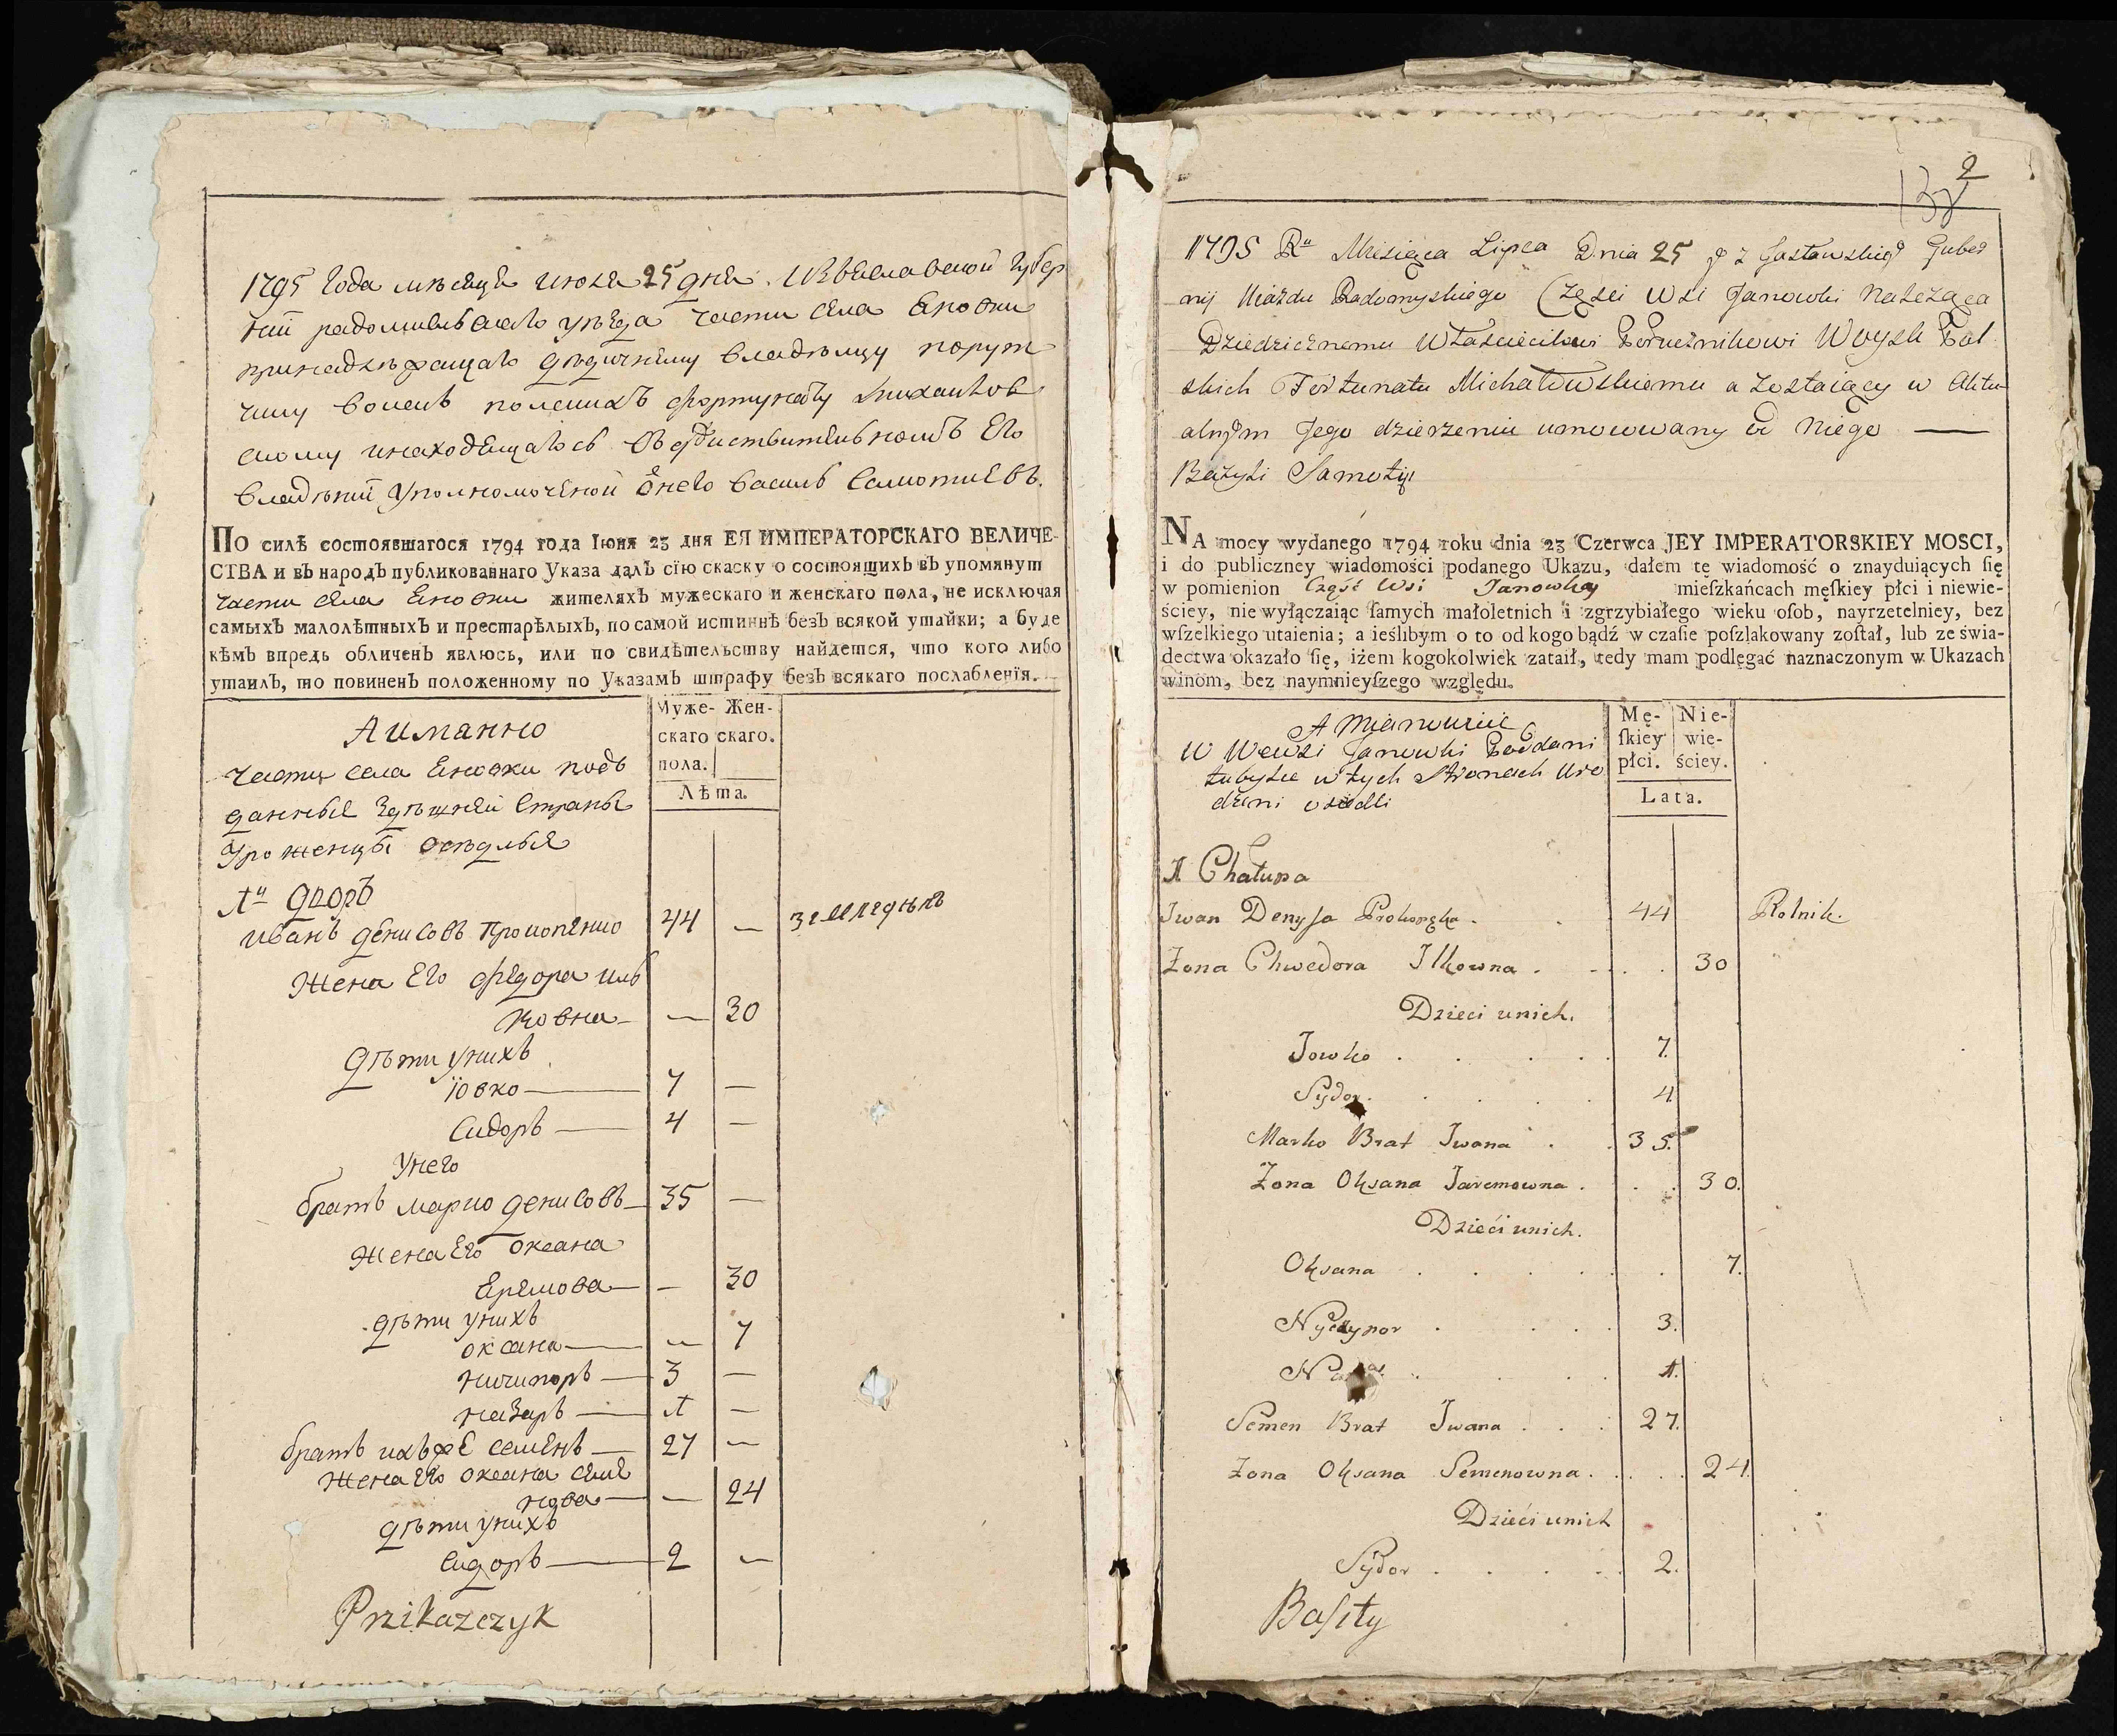 1795 года мѣсяца июля 25 дня Изъяславской губер
нии радомысльскаго уѣзда части села Яновки
принадлежащаго дѣдичному владѣльцу порут
чику воискъ полскихъ фортунату михаилов
скому инаходящагось въдѣиствителномъ его
владѣнии уполномоченой Онего василь Самотиевъ.
ПО силѣ состоявшагося 1794 года Іюня 23 дня ЕЯ ИМПЕРАТОРСКАГО ВЕЛИЧЕ-
СТВА и въ народъ публикованнаго Указа далъ сїю скаску о состоящихъ въ упомянут
части села Яновки жителяхъ мужескаго и женскаго пола, не исключая
самыхъ малолѣтныхъ и престарѣлыхъ, по самой истиннѣ безъ всякой утайки; а буде
кѣмъ впредь обличенъ явлюсь, или по свидѣтельству найдется, что кого либо
утаилъ, то повиненъ положенному по Указамъ штрафу безъ всякаго послабленїя.
Муже- Жен-
скаго скаго.
пола.
Лѣта.
Аимянно
части села Яновки подъ
данные здѣшней страны
Уроженцы осѣдлые
1й дворъ
иванъ денисовъ Прокопенко 44 — земледѣлъ
жена Его федора иль
ковна — 30
дѣти унихъ
їовко — 7 —
Сидоръ — 4 —
Унего
братъ марко денисовъ — 35 —
жена Его оксана
Еремова — — 30
дѣти унихъ
оксана — — 7
ничипоръ — 3 —
назаръ — 1 —
братъ ихъже семенъ — 27 —
жена его оксана семе
нова — — 24
дѣти унихъ
сидоръ — 2 —
Przikazczyk
2
1795 Ru Miesiąca Lipca Dnia 25 Jzasławskiej Guber
nij Ujazdu Radomyskiego Części Wsi Janowki Należąca
Dziedzicznemu Właścicilowi Porucznikowi Woysk Pol
skich Fortunatu Michałowskiemu a Zostaiący w Aktu
alnym Jego dzierzeniu umocowany od Niego —
Bazyli Samotij
NA mocy wydanego 1794 roku dnia 23 Czerwca JEY IMPERATORSKIEY MOSCI,
i do publiczney wiadomości podanego Ukazu, dałem tę wiadomość o znayduiących ſię
w pomienion Część Wsi Janowka mieſzkańcach męſkiey płci i niewie-
ściey, nie wyłączaiąc ſamych małoletnich i zgrzybiałego wieku oſob, nayrzetelniey, bez
wſzelkiego utaienia; a ieślibym o to od kogo bądź w czaſie poſzlakowany zoſtał, lub ze świa-
dectwa okazało ſię, iżem kogokolwiek zataił, tedy mam podlęgać naznaczonym w Ukazach
winom, bez naymnieyſzego względu.
Mę- Nie-
ſkiey wie-
płci. ściey.
Lata.
A Mianowicie
W Wewsi Janowki Poddani
tubylce w tych Stronach Uro
dzeni osiedli
1 Chałupa
Jwan Denysa 44 Rolnik.
Zona Chwedora Ilkowna 30
Dzieci unich.
Jowko 7.
Sydor 4
Marko Brat Jwana 35.
Zona Oksana Jaremowna 30.
Dzieci unich.
Oksana 7.
Nyczypor 3.
1.
Semen Brat Jwana 27.
Zona Oksana Semenowna 24.
Dzieci unich
Sydor 2.
Baſily